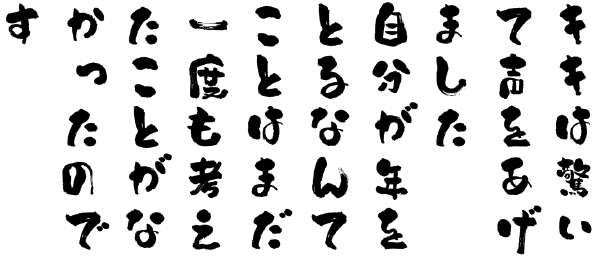 キキは驚い
て声をあげ
ました
自分が年を
とるなんて
ことはまだ
一度も考え
たことがな
かったので
す